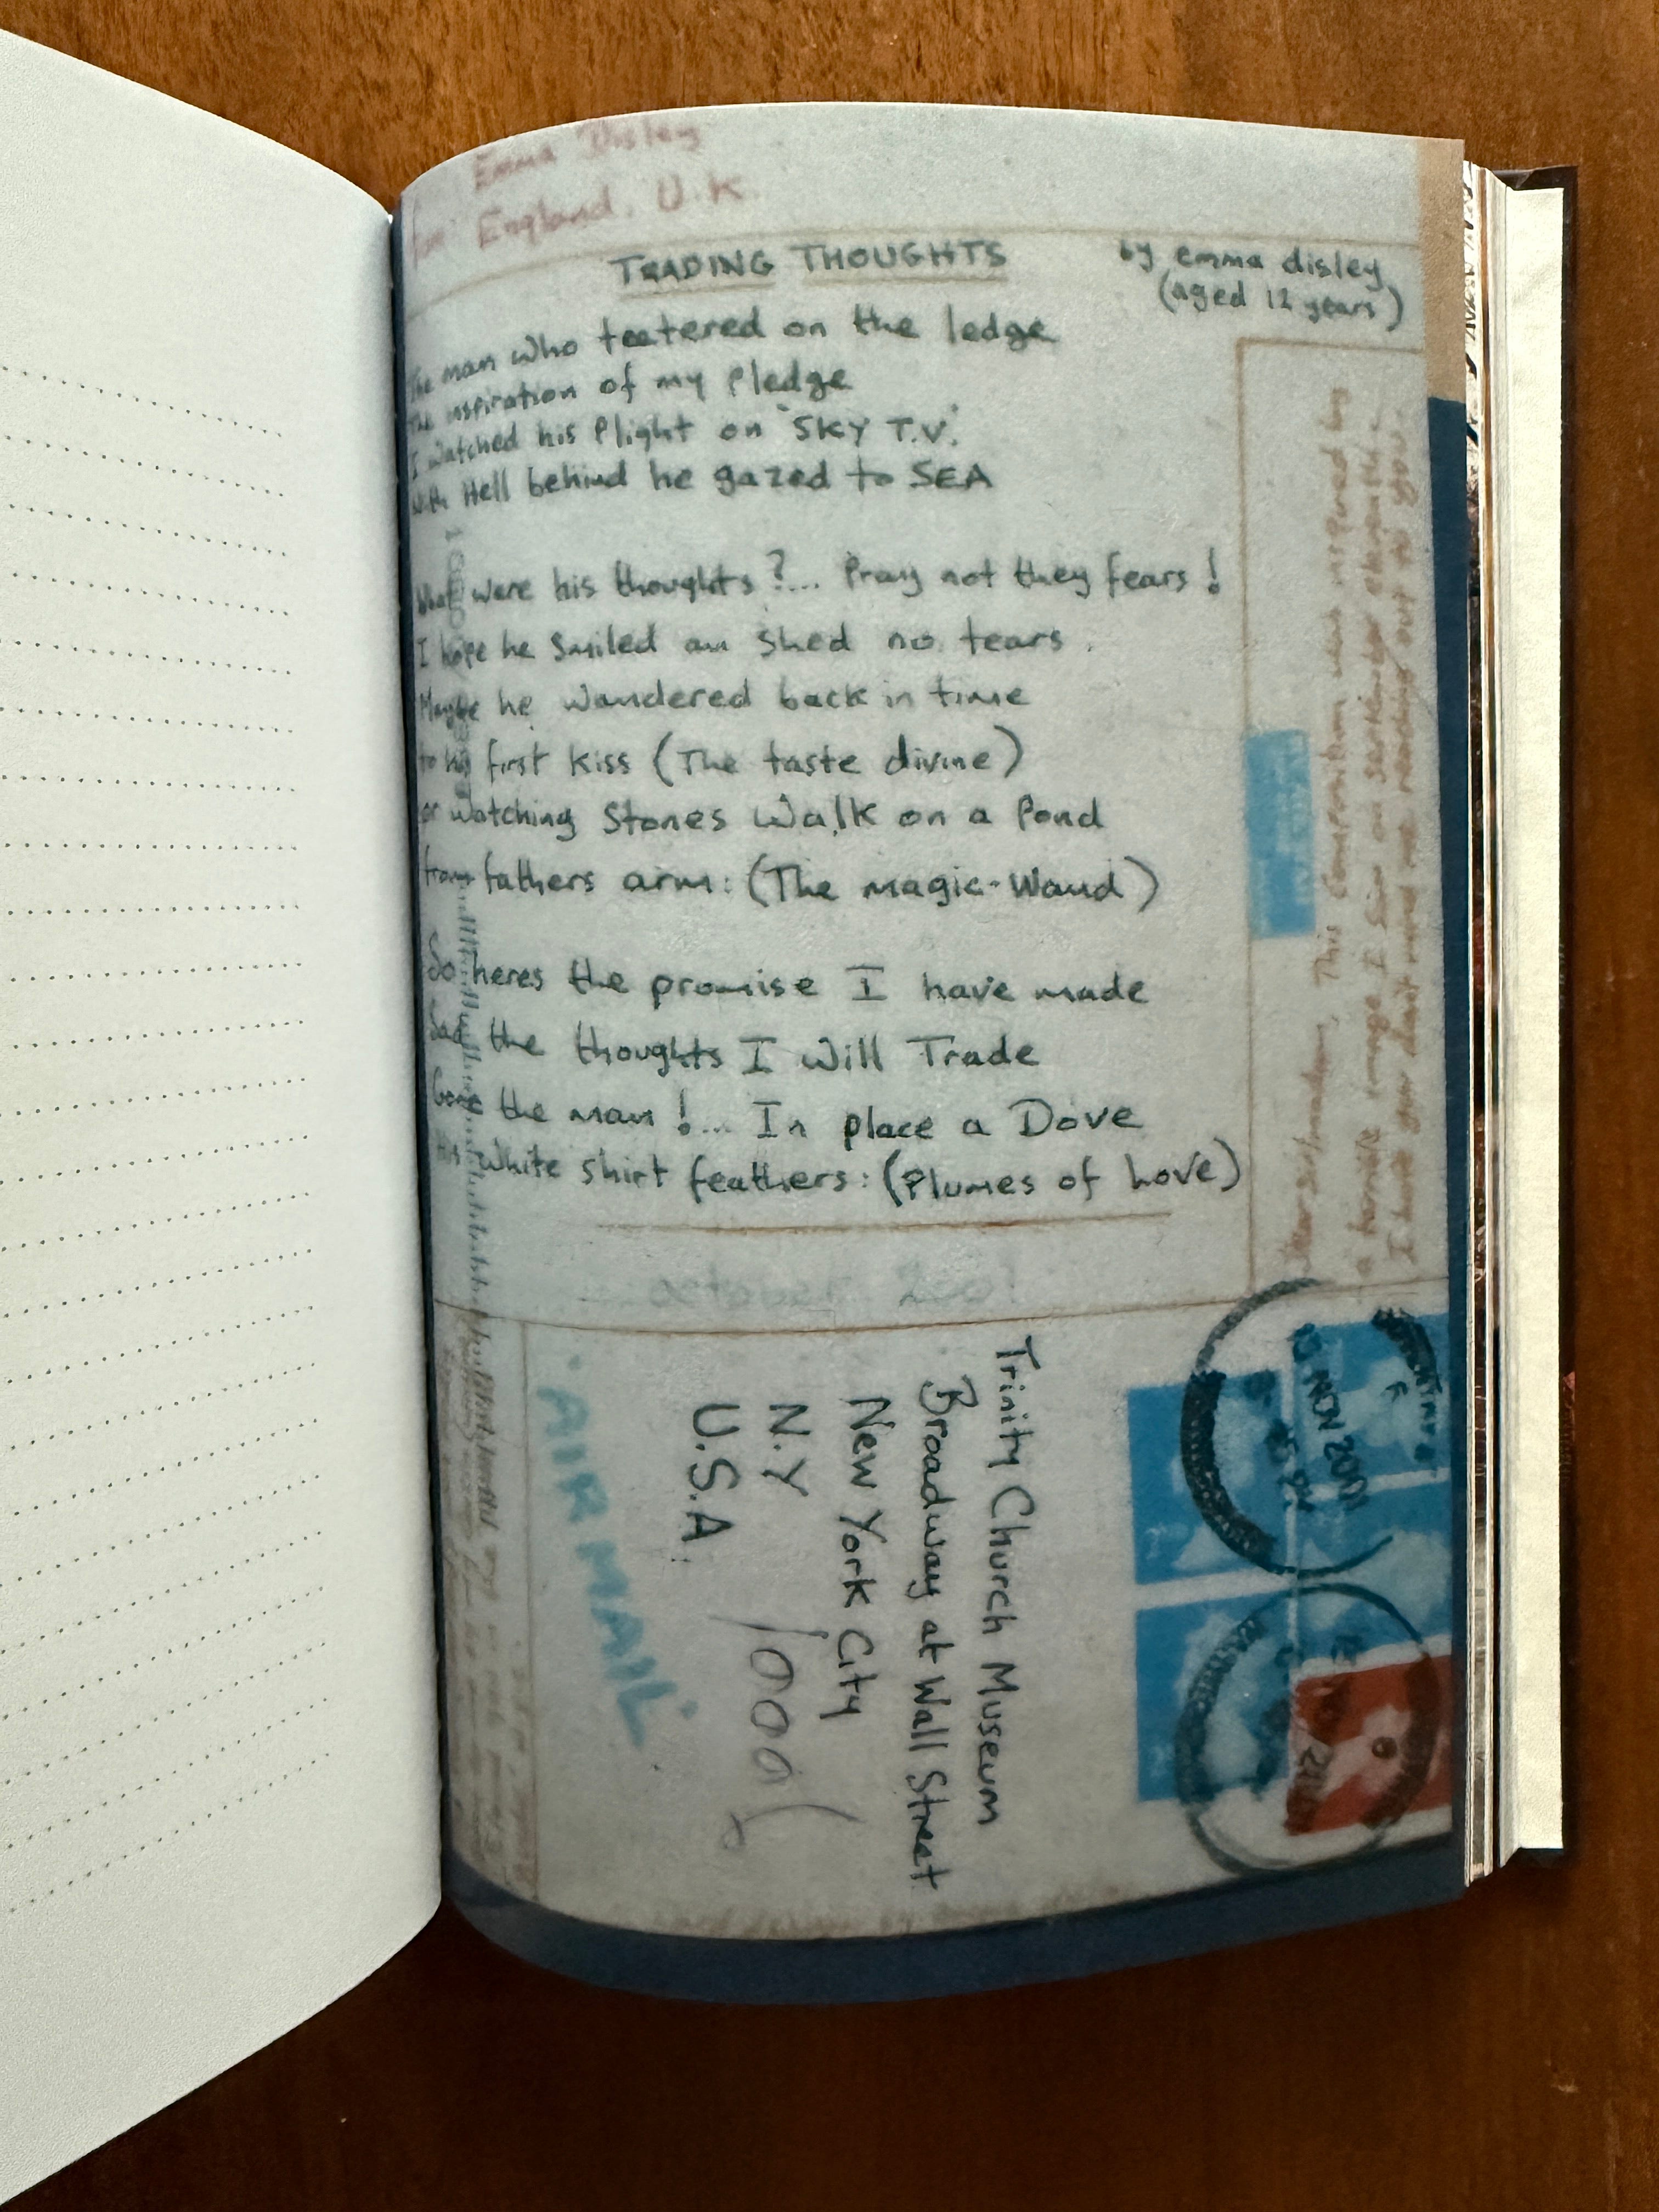 Emma Disley
England, U.K.
TRADING THOUGHTS
by emma disley
(aged 12 years)
The man who teetered on the ledge
The inspiration of my Pledge
I watched his Plight on 'SKY T.V.'
With Hell behind he gazed to SEA
What were his thoughts?... Pray not they fears!
I hope he smiled an shed no tears.
Maybe he wandered back in time
to his first kiss (The taste divine)
or watching Stones Walk on a Pond
from fathers arm: (The magic-Wand)
So heres the promise I have made
Sad the thoughts I will Trade
Gone the man!... In place a Dove
His white shirt feathers: (Plumes of Love)
October 2001
Dear Sir/madam, This Composition was inspired by
a terrible image I saw on September eleventh.
I hope you don't mind me reaching out to you.
Trinity Church Museum
Broadway at Wall Street
New York City
N.Y
U.S.A
'AIR MAIL'
NOV 2001